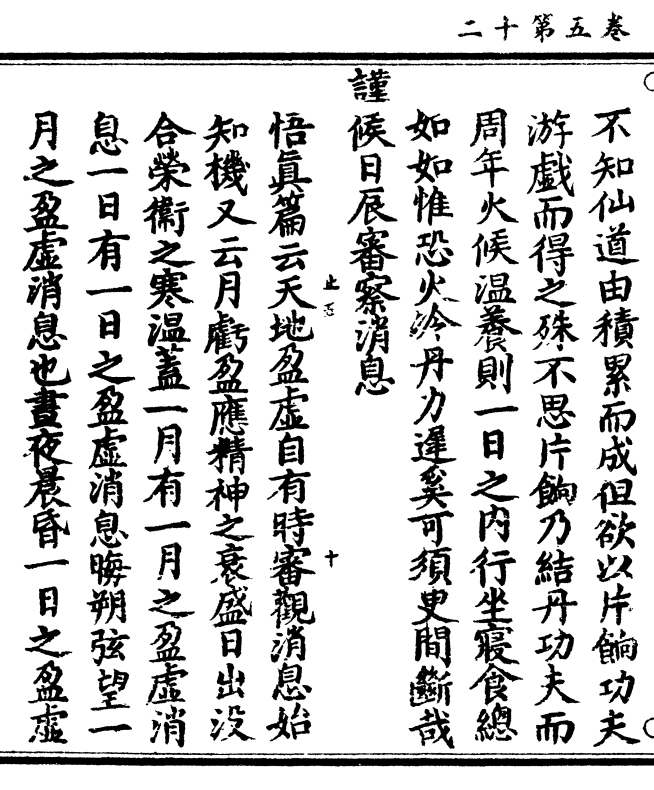 卷五第十二
不知仙道由積累而成但欲以片餉功夫
游戲而得之殊不思片餉乃結丹功夫而
周年火候溫養則一日之內行坐寢食總
如如惟恐火冷丹力遲奚可須臾間斷哉
謹候日辰審察消息
止
十
悟眞篇云天地盈虛自有時審觀消息始
知機又云月虧盈應精神之衰盛日出没
合榮衞之寒溫蓋一月有一月之盈虛消
息一日有一日之盈虛消息晦朔弦望一
月之盈虛消息也晝夜晨昏一日之盈虛